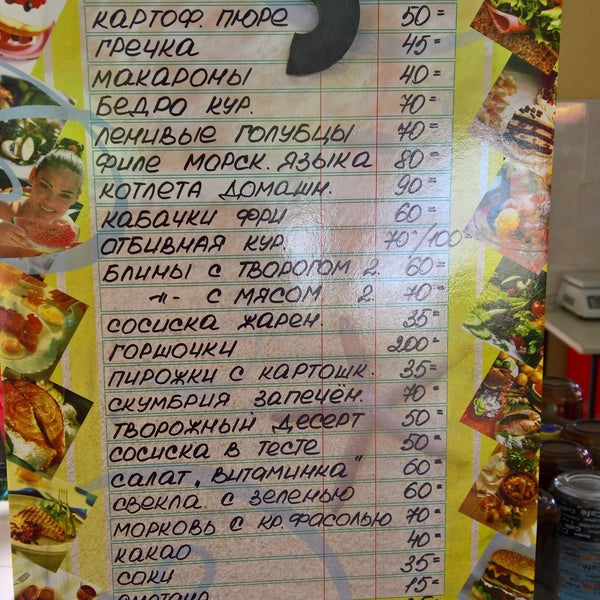 КАРТОФ. ПЮРЕ 50=
ГРЕЧКА 45=
МАКАРОНЫ 40=
БЕДРО КУР. 70=
ЛЕНИВЫЕ ГОЛУБЦЫ 70=
ФИЛЕ МОРСК. ЯЗЫКА 80=
КОТЛЕТА ДОМАШН. 90=
КАБАЧКИ ФРИ 60=
ОТБИВНАЯ КУР. 70=/100=
БЛИНЫ С ТВОРОГОМ 2. 60=
-"- С МЯСОМ 2. 70=
СОСИСКА ЖАРЕН. 35=
ГОРШОЧКИ 200=
ПИРОЖКИ С КАРТОШК. 35=
СКУМБРИЯ ЗАПЕЧЁН. 70=
ТВОРОЖНЫЙ ДЕСЕРТ 50=
СОСИСКА В ТЕСТЕ 50=
САЛАТ „ВИТАМИНКА" 60=
СВЕКЛА С ЗЕЛЕНЬЮ 60=
МОРКОВЬ С КР. ФАСОЛЬЮ 70=
КАКАО 40=
СОКИ 35=
СМЕТАНА 15=